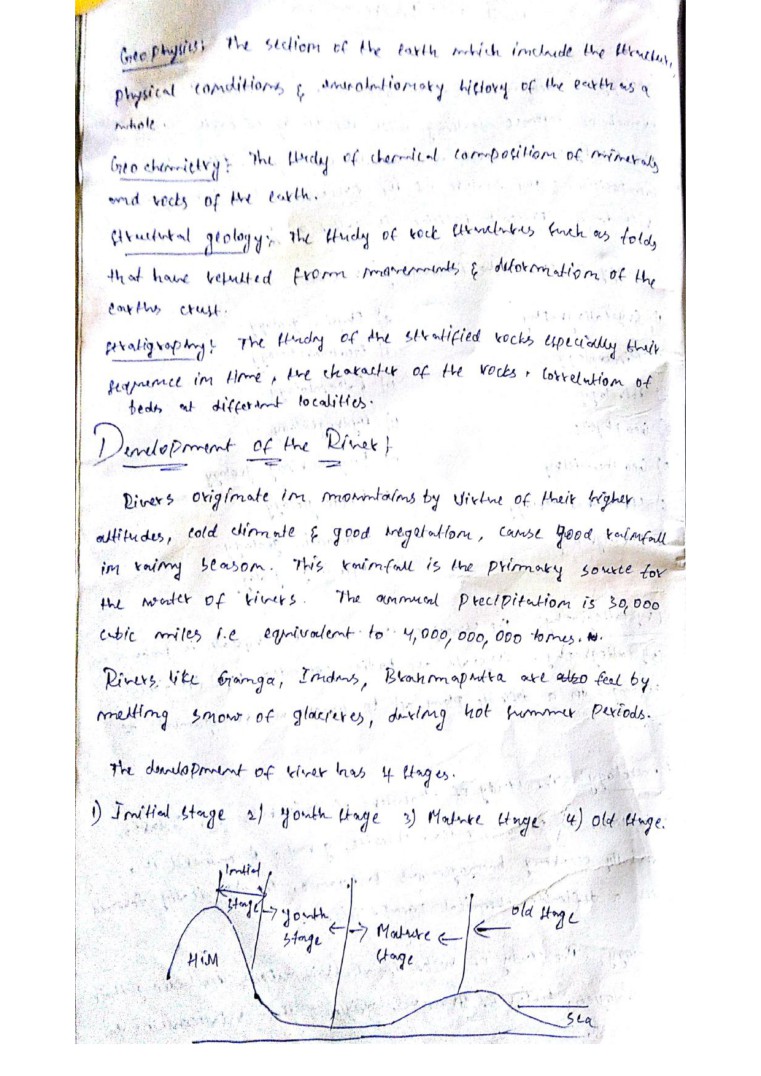 Geophysics: The section of the earth which include the structure,
physical conditions & evolutionary history of the earth as a
whole.
Geo chemistry: The study of chemical composition of minerals
and rocks of the earth.
Structural geology: The study of rock structures such as folds
that have resulted from movements & deformation of the
earths crust.
Stratigraphy: The study of the stratified rocks especially their
sequence in time, the character of the rocks, correlation of
beds at different localities.
Development of the River:
Rivers originate in mountains by virtue of their higher
altitudes, cold climate & good vegetation, cause good rainfall
in rainy season. This rainfall is the primary source for
the water of rivers. The annual precipitation is 30,000
cubic miles i.e equivalent to 4,000,000,000 tones.
Rivers like Ganga, Indus, Brahmaputra are also feel by
melting snow of glacieres, during hot summer periods.
The development of river has 4 stages.
1) Initial stage 2) youth stage 3) Mature stage 4) old stage.
Initial
stage
youth
stage
Mature
stage
old stage
Hill
Sea